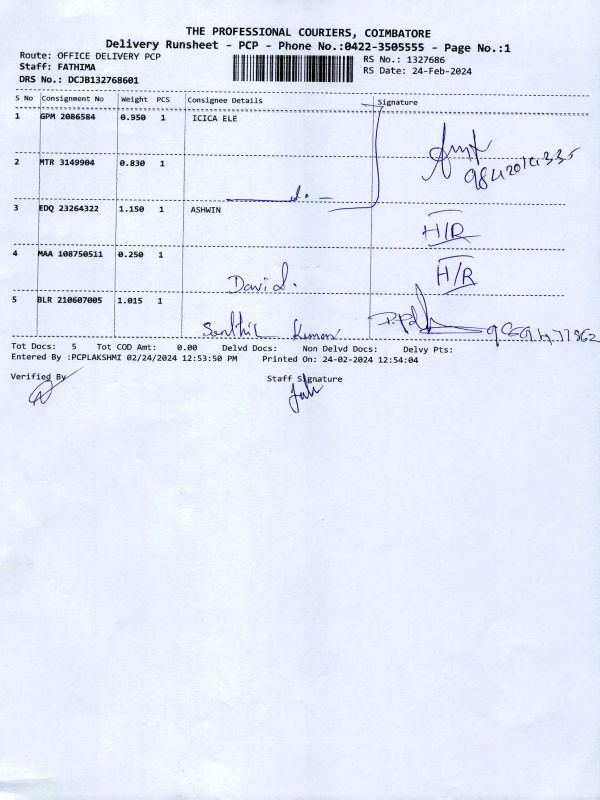 THE PROFESSIONAL COURIERS, COIMBATORE
Delivery Runsheet - PCP - Phone No.:0422-3505555 - Page No.:1
Route: OFFICE DELIVERY PCP
RS No.: 1327686
Staff: FATHIMA
RS Date: 24-Feb-2024
DRS No.: DCJB132768601
S No Consignment No Weight PCS Consignee Details Signature
1 GPM 2086584 0.950 1 ICICA ELE
2 MTR 3149904 0.830 1
3 EDQ 23264322 1.150 1 ASHWIN
H/R
4 MAA 108750511 0.250 1
David. H/R
5 BLR 210607005 1.015 1
Senthil Kumar
Tot Docs: 5 Tot COD Amt: 0.00 Delvd Docs: Non Delvd Docs: Delvy Pts:
Entered By :PCPLAKSHMI 02/24/2024 12:53:50 PM Printed On: 24-02-2024 12:54:04
Verified By Staff Signature